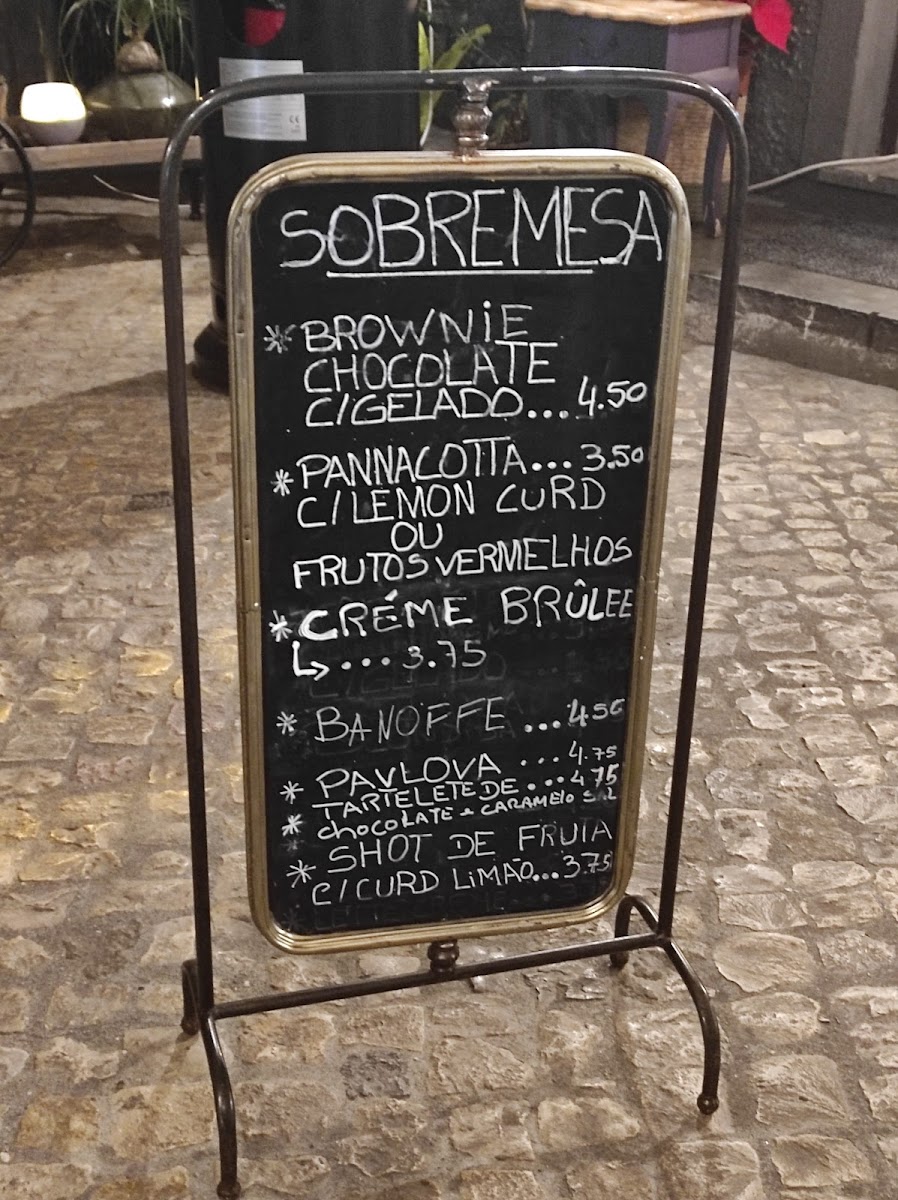 SOBREMESA
* BROWNiE
CHOCOLATE
C/GELADO... 4.50
* PANNACOTTA... 3.50
C/LEMON CURD
OU
FRUTOS VERMELHOS
* CRÉME BRÛLEE
↳ ... 3.75
* BANOFFE ... 4.50
* PAVLOVA ... 4.75
TARTELETE DE ... 4.75
* CHOCOLATE e CARAMELO SAL
* SHOT DE FRUTA
C/CURD LiMÃO... 3.75